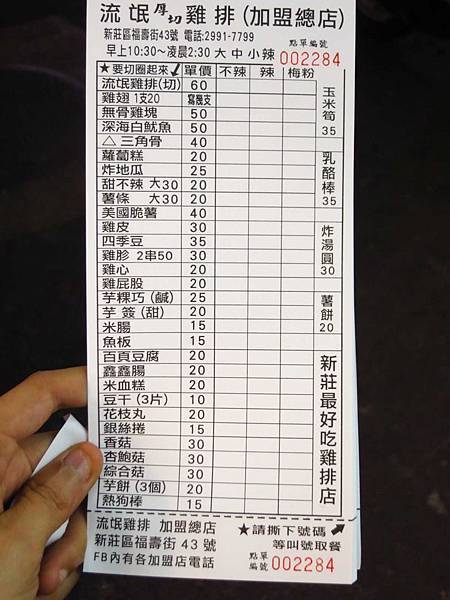 流氓厚切雞排(加盟總店)
新莊區福壽街43號 電話:2991-7799
早上10:30～凌晨2:30 大 中 小 辣
點單編號 002284
★要切圈起來↙ 單價 不辣 辣 梅粉
流氓雞排(切) 60
雞翅 1支20 寫幾支
無骨雞塊 50
深海白魷魚 50
△三角骨 40
蘿蔔糕 20
炸地瓜 25
甜不辣 大30 20
薯條 大30 20
美國脆薯 40
雞皮 30
四季豆 35
雞胗 2串50 30
雞心 20
雞屁股 20
芋粿巧(鹹) 25
芋簽(甜) 20
米腸 15
魚板 15
百頁豆腐 20
鑫鑫腸 20
米血糕 20
豆干(3片) 10
花枝丸 20
銀絲捲 15
香菇 30
杏鮑菇 30
綜合菇 30
芋餅(3個) 20
熱狗棒 15
玉米筍 35
乳酪棒 35
炸湯圓 30
薯餅 20
新莊最好吃雞排店
流氓雞排 加盟總店
新莊區福壽街 43 號
FB內有各加盟店電話
★請撕下號碼↗
等叫號取餐
點單編號 002284